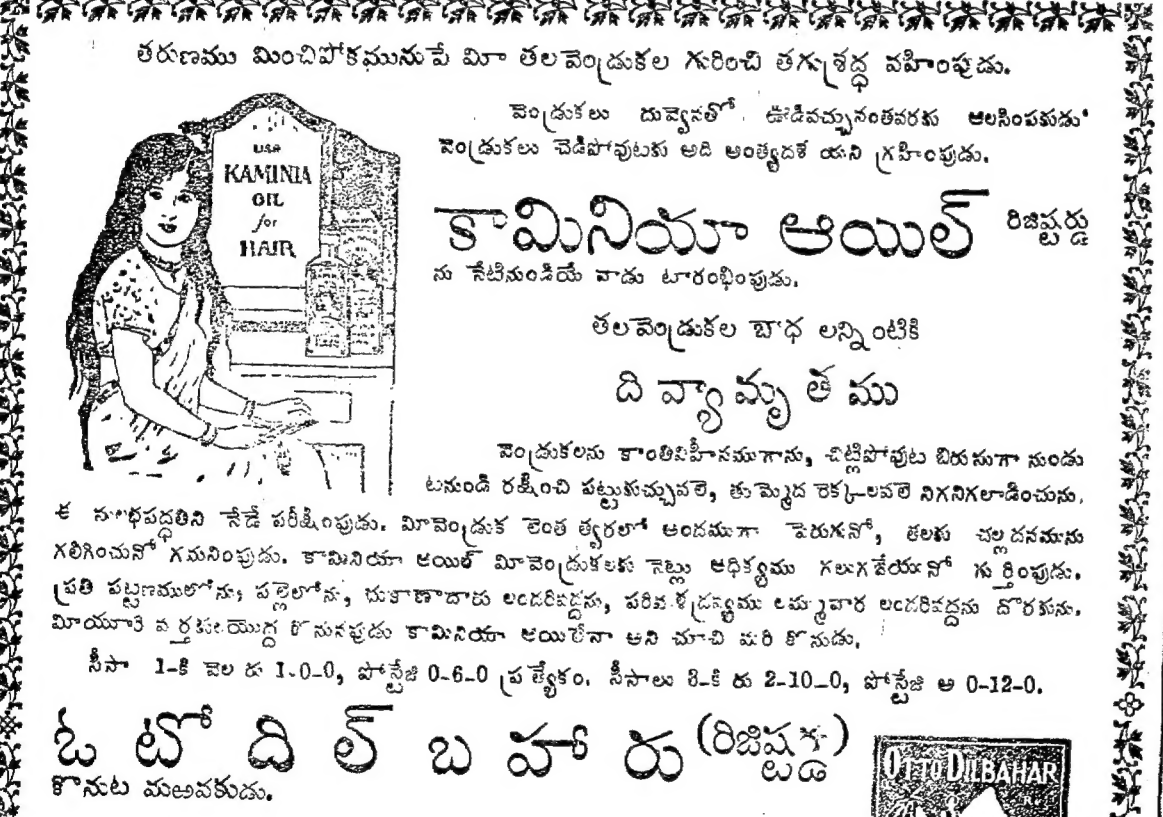 తరుణము మించిపోకమునుపే మీ తలవెండ్రుకల గురించి తగు శ్రద్ధ వహింపుడు.
వెండ్రుకలు దువ్వెనతో ఊడివచ్చునంతవరకు ఆలసింపకుడు
వెండ్రుకలు చెడిపోవుటకు అది అంత్యదశ యని గ్రహింపుడు.
USE
KAMINIA
OIL
for
HAIR
కామినియా ఆయిల్ రిజిష్టర్డు
ను నేటినుండియే వాడ ప్రారంభింపుడు.
తలవెండ్రుకల బాధ లన్నింటికి
ది వ్యా మృ త ము
వెండ్రుకలను కాంతివిహీనముగాను, చిట్లిపోవుట బిరుసుగా నుండు
టనుండి రక్షించి పట్టుకుచ్చువలె, తుమ్మెద రెక్కలవలె నిగనిగలాడించును.
ఈ సులభపద్ధతిని నేడే పరీక్షింపుడు. మీవెండ్రుక లెంత త్వరలో అందముగా పెరుగునో, తలకు చల్లదనమును
గలిగించునో గమనింపుడు. కామినియా ఆయిల్ మీవెండ్రుకలకు నెట్లు ఆధిక్యము గలుగజేయునో గుర్తింపుడు.
ప్రతి పట్టణములోను, పల్లెలోను, దుకాణాదారు లందరివద్దను, పరిమళద్రవ్యము లమ్మువార లందరివద్దను దొరకును.
మీయూరి వర్తకులయొద్ద కొనునపుడు కామినియా ఆయిలేనా అని చూచి మరి కొనుడు.
సీసా 1-కి వెల రు 1-0-0, పోస్టేజి 0-6-0 ప్రత్యేకం. సీసాలు 3-కి రు 2-10-0, పోస్టేజి అ 0-12-0.
ఓ టో ది ల్ బ హా రు (రిజిష్టర్డు)
కొనుట మఱవకుడు.
OTTO DILBAHAR